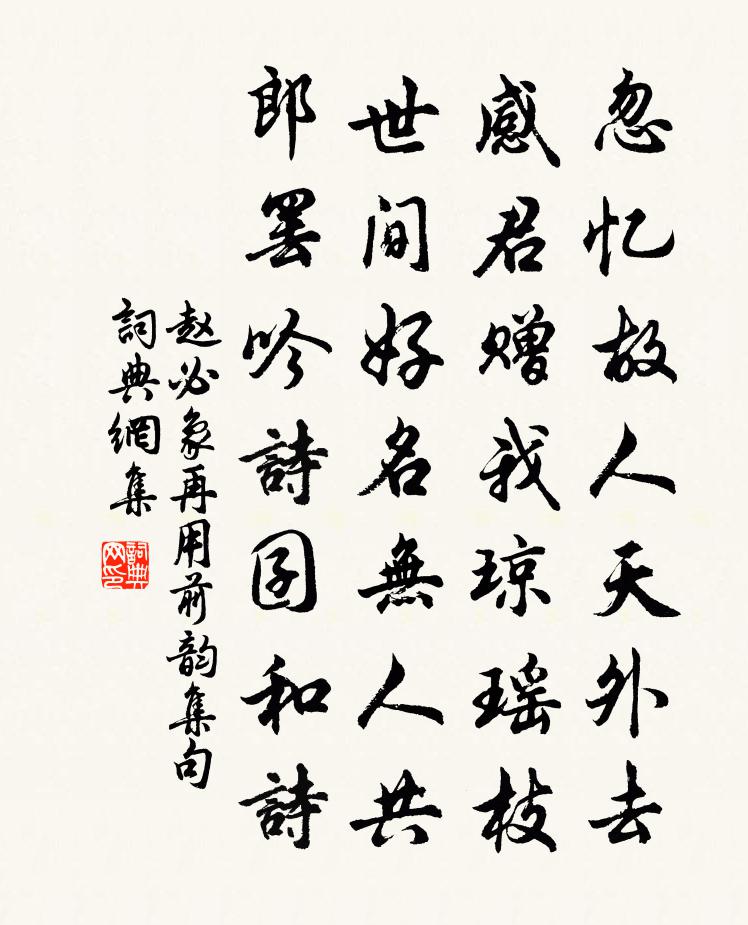 忽忆故人天外去
感君赠我琼瑶枝
世间好名無人共
郎罢吟詩囝和詩
赵必象再用前韵集句
詞典網集
詞典网印